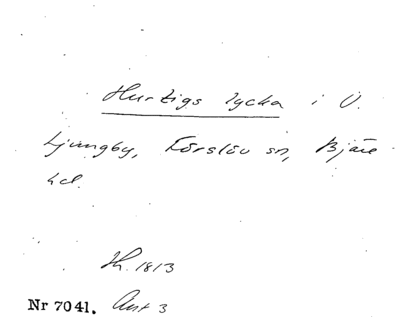 Hurtigs lycka i V.
Ljungby, Förslöv sn, Bjäre
hd.
Sk. 1813
Nr 7041. Ant 3